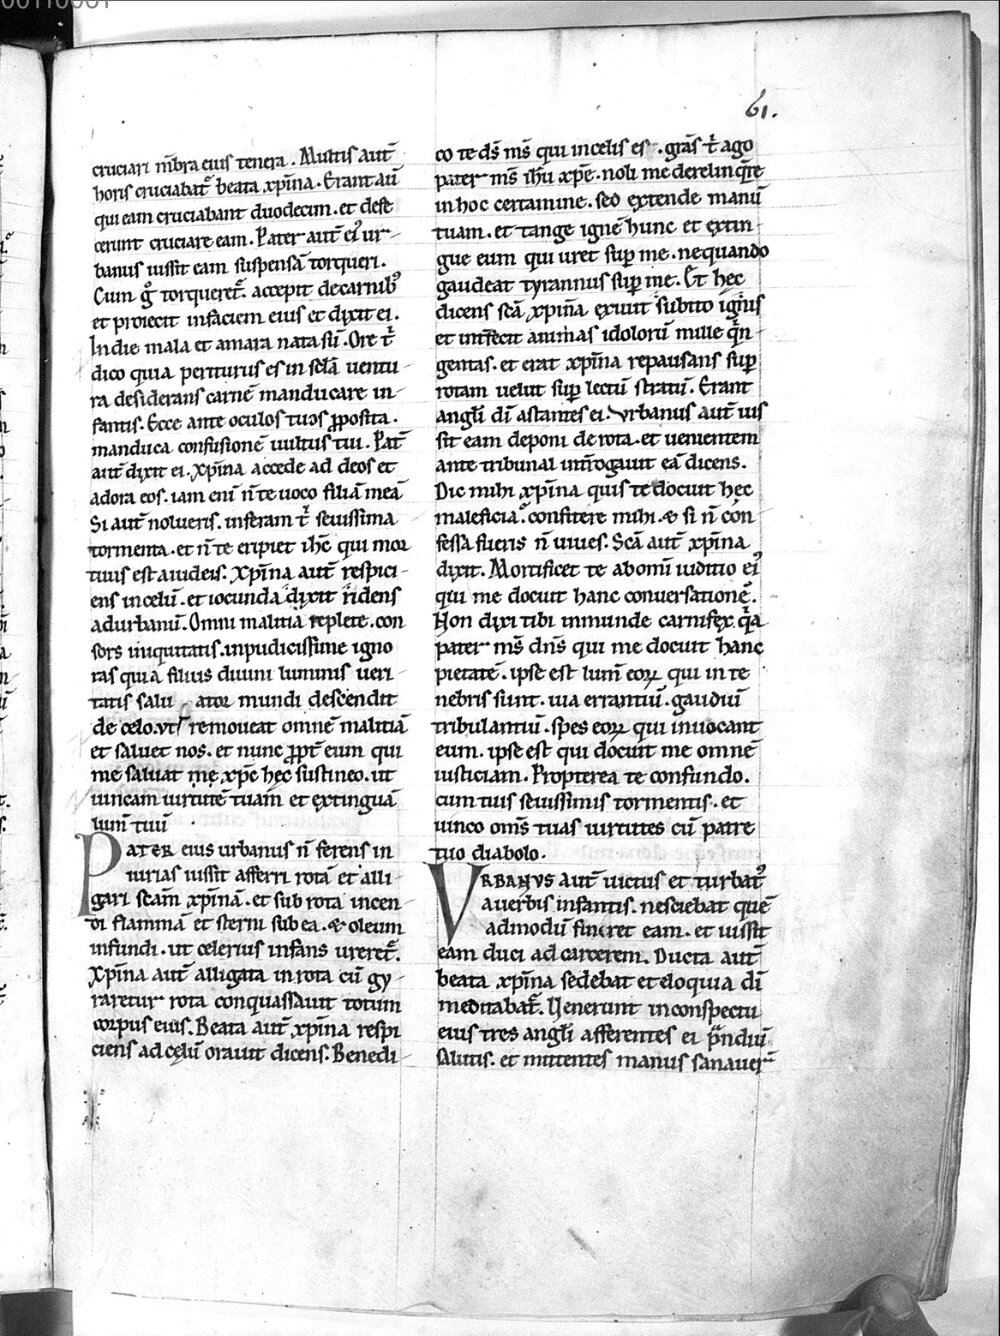 61.
cruciari mẽbra eius tenera. Multis aut̃
horis cruciabat᷑ beata xp̃ina. Erant aũ
qui eam cruciabant duodecim. et defe
cerunt cruciare eam. Pater aut̃ ei᷒ ur-
banus iussit eam suspensã torqueri.
Cum g̊ torqueret᷑. accepit decarnib᷒
et proiecit infaciem eius et dixit ei.
In die mala et amara nata sũ. Ore t̾
dico quia periturus es in sclã ventu-
ra desiderans carnẽ manducare in-
fantis. Ecce ante oculos tuos ꝓposita.
manduca confusionẽ uultus tui. Pat̃
aut̃ dixit ei. xp̃ina accede ad deos et
adora eos. iam eni n̄ te uoco filiã meã
Si aut̃ nolueris. inferam t̾ seuissima
tormenta. et n̄ te eripiet ih̄c qui mor
tuus est aiudeis. Xp̃ina aut̃ respici-
ens incelũ. et iocunda dixit ridens
adurbanũ. Omni malitia replete. con
sors iniquitatis. inpudicissime igno
ras quia filius diuini luminis ueri-
tatis salu ator mundi descendit
de celo. vt removeat omnẽ malitiã
et saluet nos. et nunc ꝓpt̃ eum qui
me saluat me xp̃c hęc sustineo. ut
uincam uirtutẽ tuam et extinguã
lum̃ tuũ
PATER eius urbanus n̄ ferens in
iurias iussit afferri rotã et alli-
gari scam̃ xp̃inã. et sub rota incen-
di flammã et sterni sub ea. & oleum
infundi. ut celerius infans ureret᷑.
Xp̃ina aut̃ alligata in rota cũ gy-
raretur rota conquassauit totum
corpus eius. Beata aut̃ xp̃ina respi
ciens ad cęlũ orauit dicens. Benedi-
co te ds̃ ms̃ qui incelis es. gras̃ t̾ ago
pater ms̃ ihũ xp̃e. noli me derelinq̃re
in hoc certamine. sed extende manũ
tuam. et tange ignẽ hunc et extin-
gue eum qui uret suꝑ me. nequando
gaudeat tyrannus suꝑ me. Et hęc
dicens scã xp̃ina exiuit subito ignis
et int̃fecit animas idolorũ mille q̃n-
gentas. et erat xp̃ina repausans suꝑ
rotam uelut suꝑ lectũ stratũ. Erant
angl̃i dĩ astantes ei. Vrbanus aut̃ uis
sit eam deponi de rota. et uenientem
ante tribunal int̃rogauit eã dicens.
Dic mihi xp̃ina quis te docuit hęc
maleficia. confitere mihi. & si n̄ con
fessa fueris n̄ uiues. Scã aut̃ xp̃ina
dixit. Mortificet te abomĩ iuditio ei᷒
qui me docuit hanc conuersationẽ.
Non dixi tibi inmunde carnifex. q̃a
pater ms̃ dñs qui me docuit hanc
pietatẽ. ipse est lum̃ eoꝝ qui in te
nebris sunt. uia errantiũ. gaudiũ
tribulantiũ. spes eoꝝ qui inuocant
eum. ipse est qui docuit me omnẽ
iusticiam. Propterea te confundo.
cum tuis seuissimis tormentis. et
uinco oms̃ tuas uirtutes cũ patre
tuo diabolo.
VRBANVS aut̃ uictus et turbat᷒
auerbis infantis. nesciebat quẽ
admodũ finiret eam. et iussit
eam duci ad carcerem. Ducta aut̃
beata xp̃ina sedebat et eloquia dĩ
meditabat᷑. Venerunt inconspectu
eius tres angl̃i afferentes ei p̃ndiũ
salutis. et mittentes manus sanauer̃